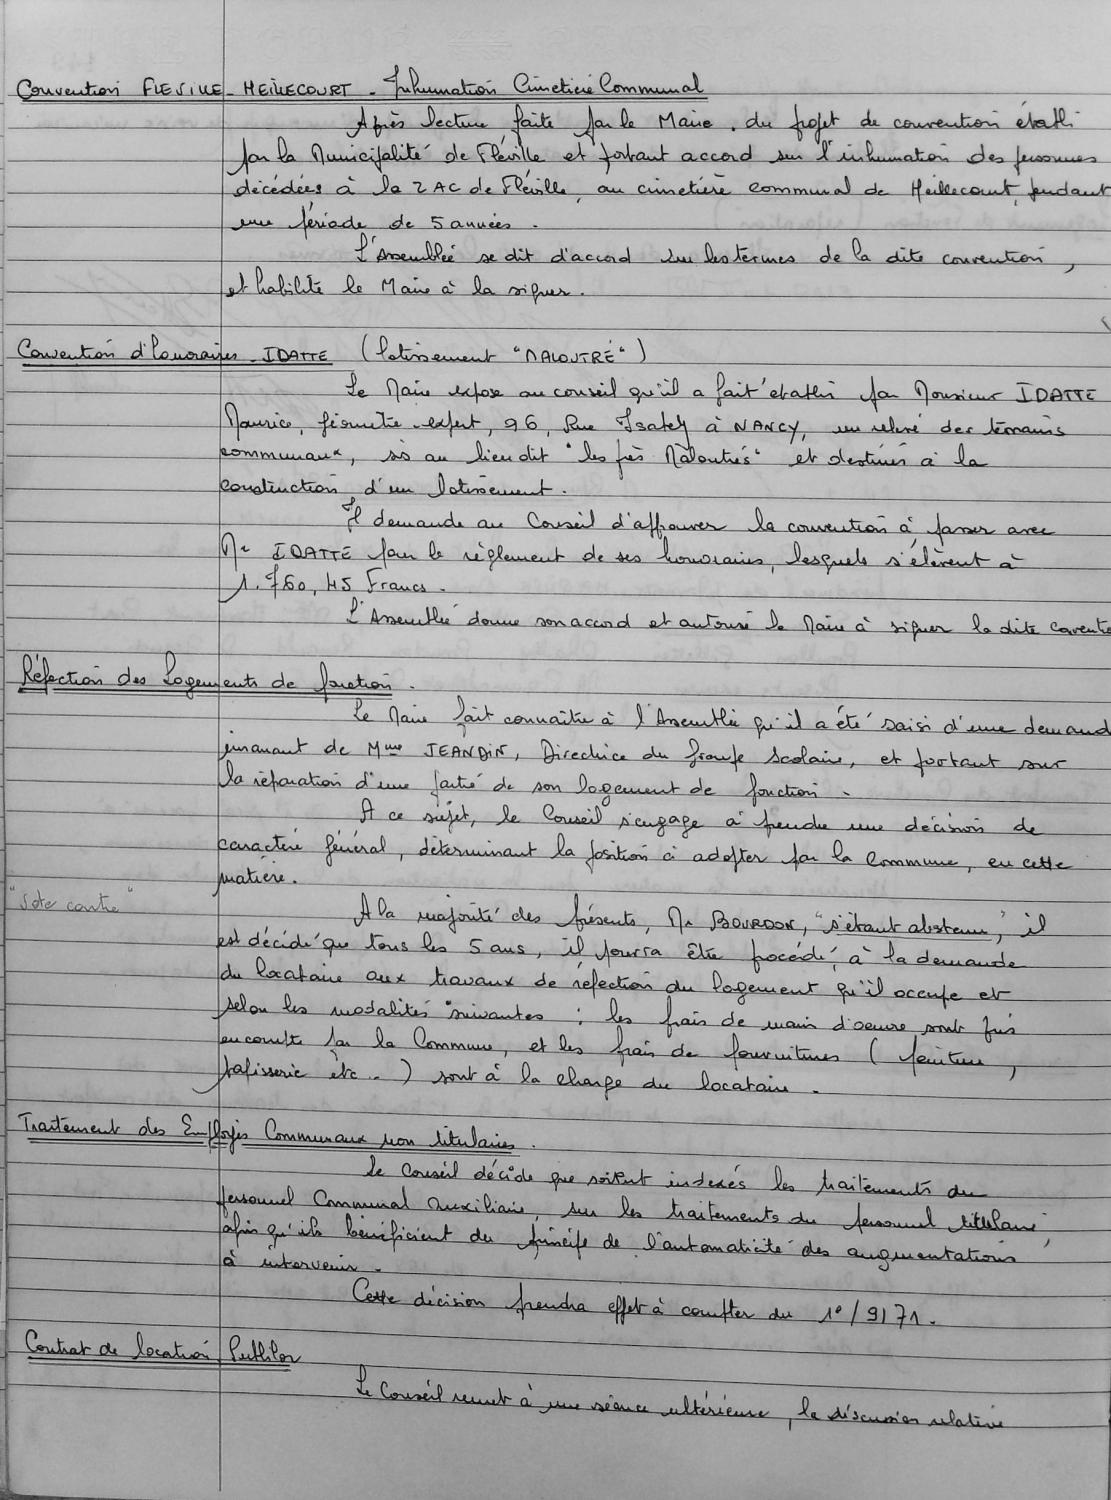 Convention FLEVILLE - HEILLECOURT - Inhumation Cimetière Communal
Après lecture faite par le Maire, du projet de convention établi
par la Municipalité de Fléville et portant accord sur l'inhumation des personnes
décédées à la ZAC de Fléville, au cimetière communal de Heillecourt, pendant
une période de 5 années.
L'Assemblée se dit d'accord sur les termes de la dite convention,
et habilite le Maire à la signer.
Convention d'honoraires - IDATTE (lotissement "MALOUTRÉ")
Le Maire expose au conseil qu'il a fait établir par Monsieur IDATTE
Maurice, géomètre expert, 96, Rue Isabey à NANCY, un relevé des terrains
communaux, sis au lieudit "les prés Maloutrés" et destinés à la
construction d'un lotissement.
Il demande au Conseil d'approuver la convention à passer avec
Mr IDATTE pour le règlement de ses honoraires, lesquels s'élèvent à
1.760,45 Francs.
L'Assemblée donne son accord et autorise le Maire à signer la dite convent
Réfection des Logements de fonction.
Le Maire fait connaître à l'Assemblée qu'il a été saisi d'une demand
émanant de Mme JEANDIN, Directrice du Groupe Scolaire, et portant sur
la réparation d'une partie de son logement de fonction.
A ce sujet, le Conseil s'engage à prendre une décision de
caractère général, déterminant la position à adopter par la Commune, en cette
matière.
"Vote contre"
A la majorité des présents, Mr BOURDON, "s'étant abstenu", il
est décidé que tous les 5 ans, il pourra être procédé, à la demande
du locataire aux travaux de réfection du logement qu'il occupe et
selon les modalités suivantes : les frais de main d'oeuvre sont pris
en compte par la Commune, et les frais de fournitures (peinture,
tapisserie etc..) sont à la charge du locataire.
Traitement des Employés Communaux non titulaires.
Le Conseil décide que soient indexés les traitements du
personnel Communal Auxiliaire, sur les traitements du personnel titulaire,
afin qu'ils bénéficient du principe de l'automaticité des augmentations
à intervenir.
Cette décision prendra effet à compter du 1º/9/71.
Contrat de location Publilor
Le Conseil remet à une séance ultérieure, la discussion relative